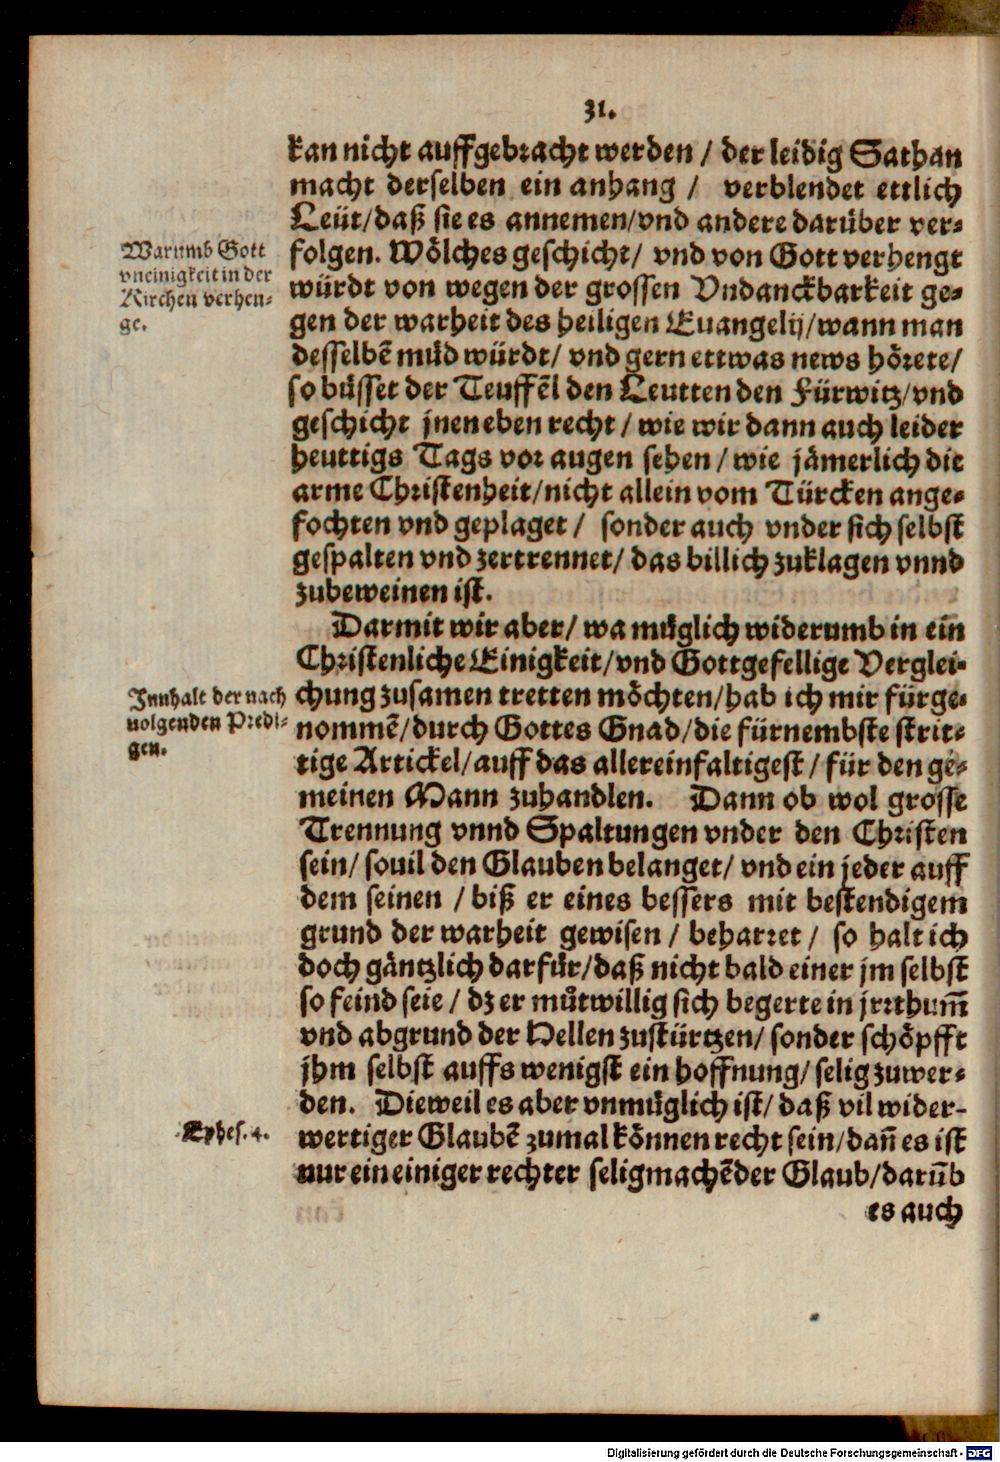 31.
kan nicht auffgebracht werden / der leidig Sathan
macht derselben ein anhang / verblendet ettlich
Leüt/daß sie es annemen/vnd andere darüber ver-
Warumb Gott
vneinigkeit in der
Kirchen verhen-
ge.
folgen. Wölches geschicht/ vnd von Gott verhengt
würdt von wegen der grossen Vndanckbarkeit ge-
gen der warheit des heiligen Euangelij/wann man
desselbẽ müd würdt/ vnd gern ettwas news hörete/
so büsset der Teuffel den Leutten den Fürwitz/vnd
geschicht jnen eben recht / wie wir dann auch leider
heuttigs Tags vor augen sehen / wie jämerlich die
arme Christenheit/nicht allein vom Türcken ange-
fochten vnd geplaget / sonder auch vnder sich selbst
gespalten vnd zertrennet/ das billich zuklagen vnnd
zubeweinen ist.
Darmit wir aber/ wa müglich widerumb in ein
Christenliche Einigkeit/vnd Gottgefellige Verglei-
Innhalt der nach
uolgenden Predi-
gen.
chung zusamen tretten möchten/hab ich mir fürge-
nommẽ/durch Gottes Gnad/die fürnembste strit-
tige Artickel/auff das allereinfaltigest / für den ge-
meinen Mann zuhandlen. Dann ob wol grosse
Trennung vnnd Spaltungen vnder den Christen
sein/ souil den Glauben belanget/ vnd ein jeder auff
dem seinen / biß er eines bessers mit bestendigem
grund der warheit gewisen / beharret / so halt ich
doch gäntzlich darfür/daß nicht bald einer jm selbst
so feind seie / dz er můtwillig sich begerte in jrrthum̃
vnd abgrund der Hellen zustürtzen/ sonder schöpfft
jhm selbst auffs wenigst ein hoffnung/ selig zuwer-
den. Dieweil es aber vnmüglich ist/ daß vil wider-
Ephes. 4.
wertiger Glaubẽ zumal können recht sein/dañ es ist
nur ein einiger rechter seligmachẽder Glaub/darũb
es auch
Digitalisierung gefördert durch die Deutsche Forschungsgemeinschaft - DFG